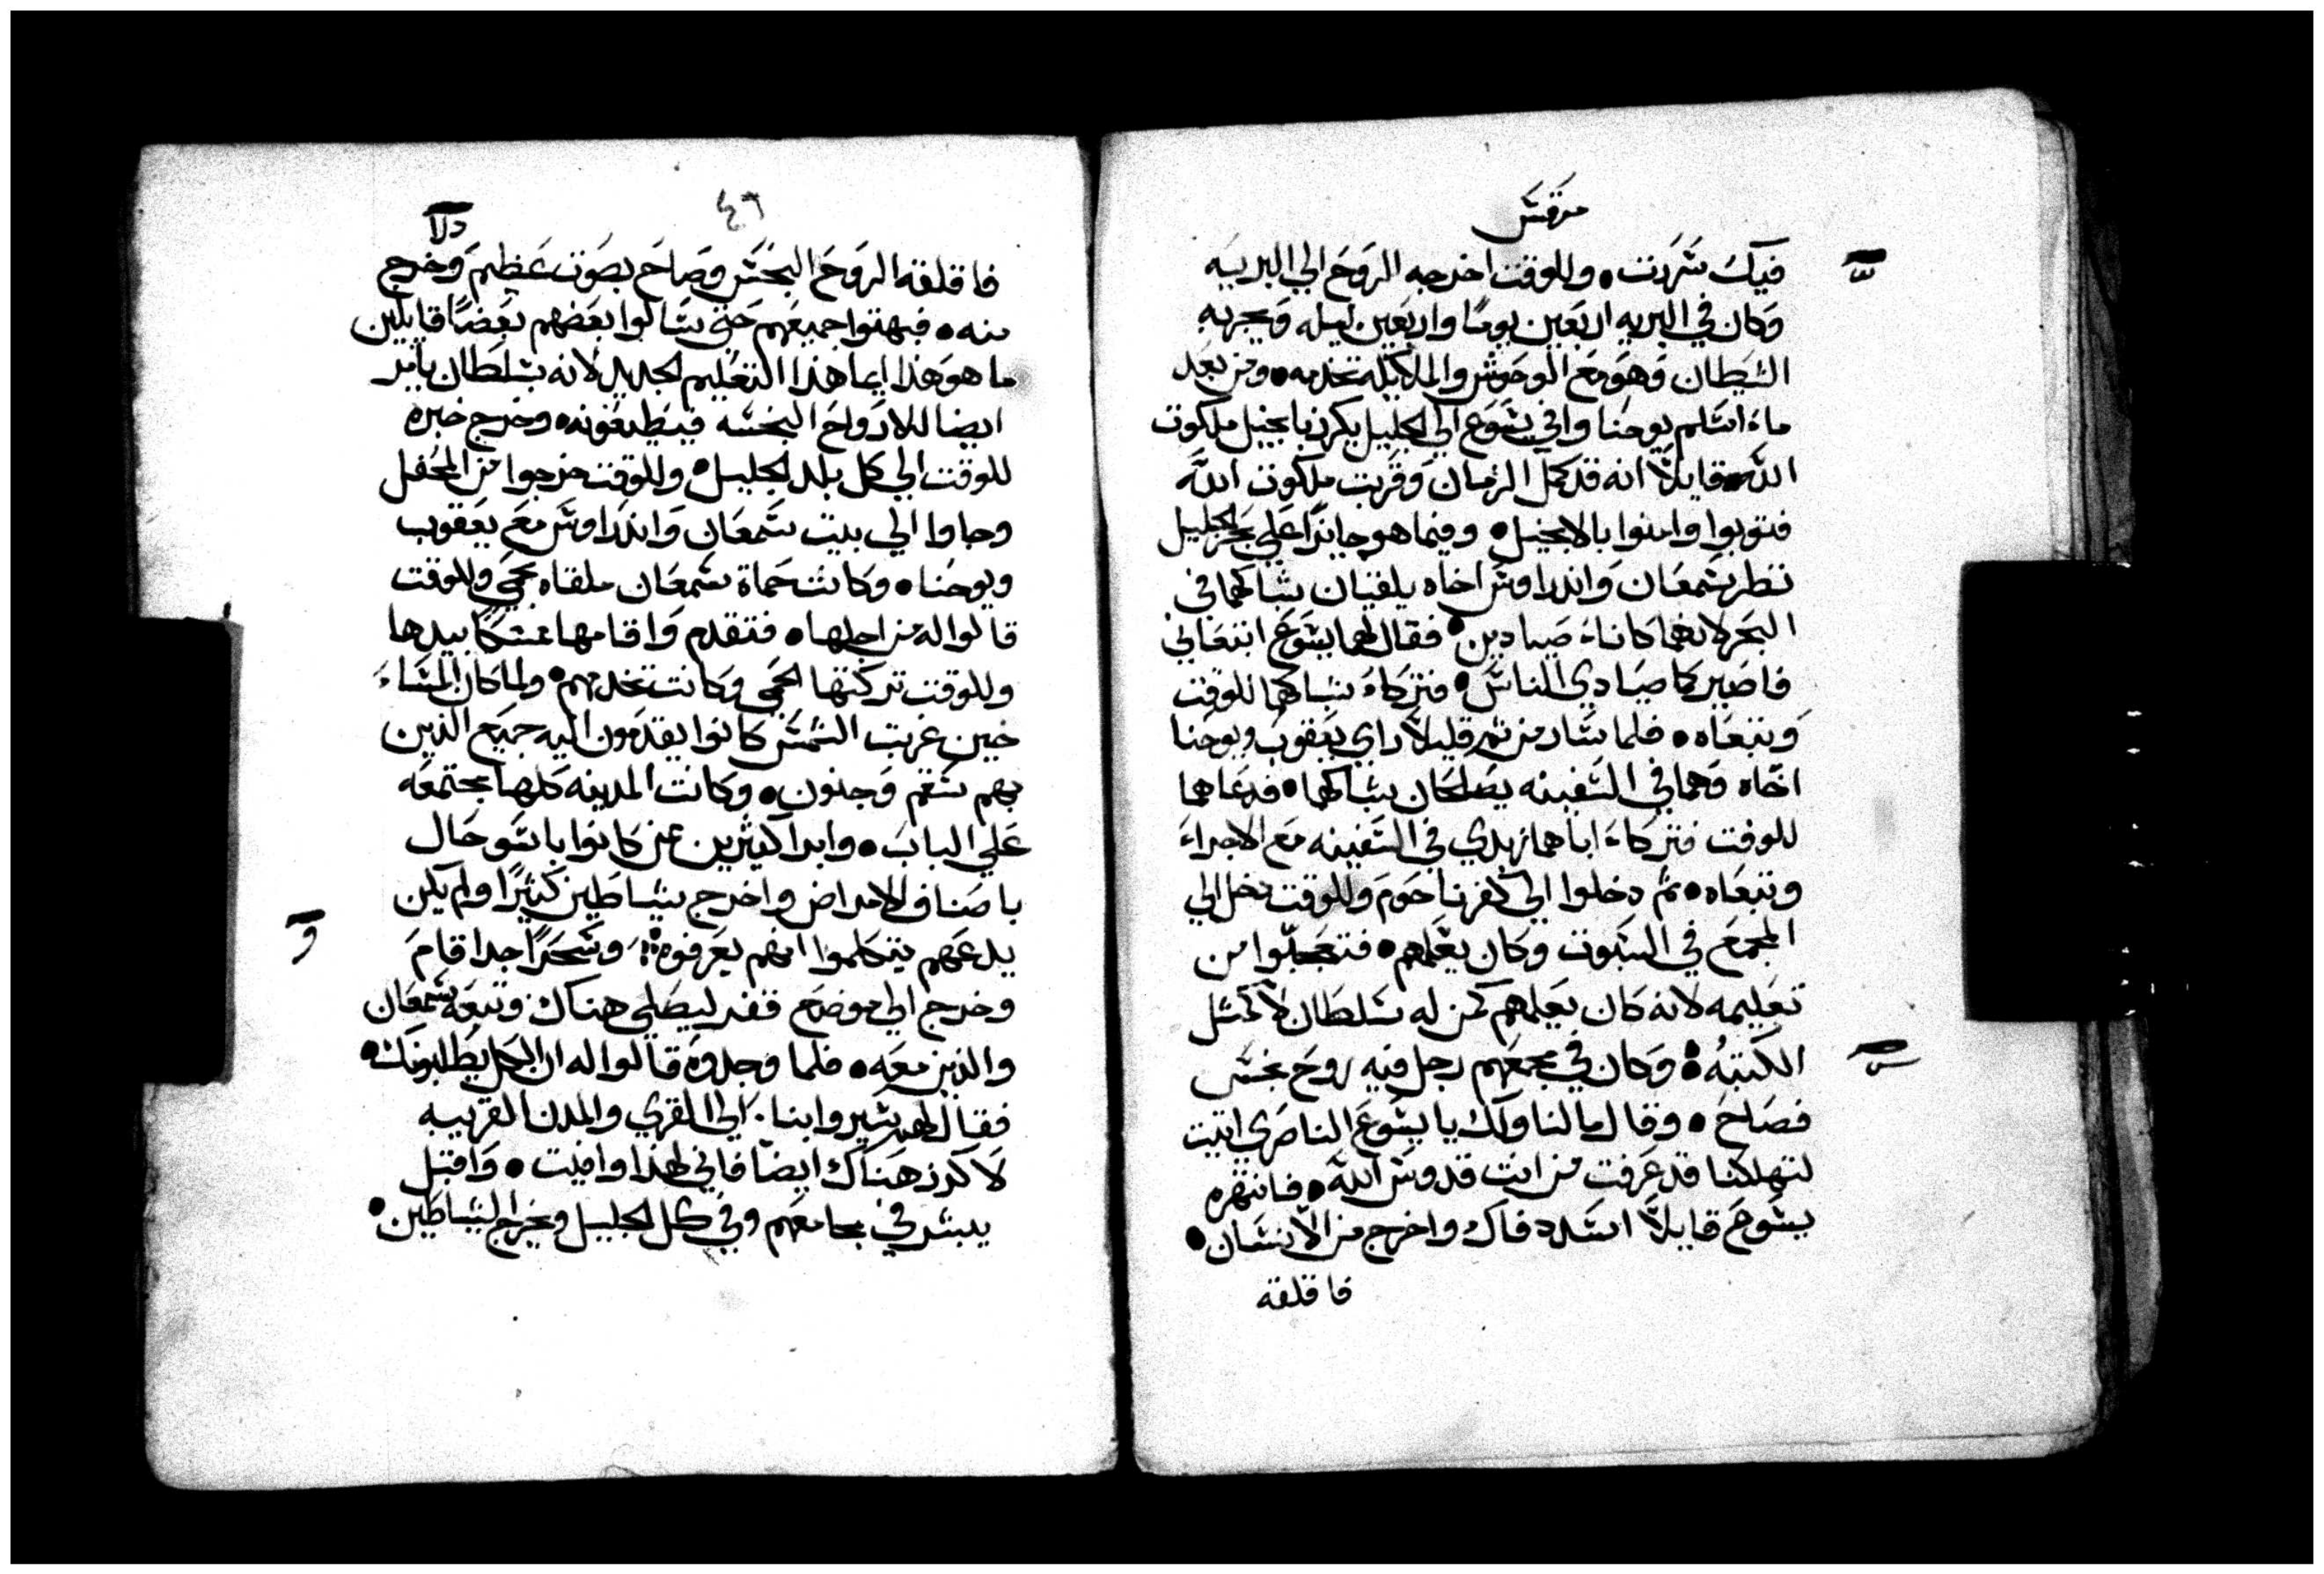 مرقس
فيك سررت • وللوقت اخرجه الروح الي البريه
وكان في البريه اربعين يومًا واربعين ليله ويجربه
الشيطان وهو مع الوحوش والملايكه تخدمه • ومن بعد
ماء اسلم يوحنا وافي يسوع الي الجليل يكرز بانجيل ملكوت
الله • قايلًا انه قد كمل الزمان وقربت ملكوت الله
فتوبوا وامنوا بالانجيل • وفيما هو جايزًا علي بحر الجليل
نظر سمعان واندراوس اخاه يلقيان شباكهما في
البحر لانهما كاناء صيادين • فقال لهما يسوع اتبعاني
فاصيركما صيادي الناس • فتركاء شباكهما للوقت
وتبعاه • فلما سار من ثم قليلًا راي يعقوب ويوحنا
اخاه وهما في السفينه يصلحان شباكهما • فدعاهما
للوقت فتركاء اباهما زبدي في السفينه مع الاجراء
وتبعاه • ثم دخلوا الي كفرناحوم وللوقت دخل الي
المجمع في السبوت وكان يعلمهم • فتعجبوا من
تعليمه لانه كان يعلمهم كمن له سلطان لا كمثل
الكتبه • وكان في مجمعهم رجل فيه روح نجس
فصاح • وقال ما لنا ولك يا يسوع الناصري اتيت
لتهلكنا قد عرفت من انت قدوس الله • فانتهره
يسوع قايلًا اسدد فاك واخرج من الانسان •
فاقلقه
٤٦
فاقلقه الروح النجس وصاح بصوت عظيم وخرج
منه • فبهتوا جميعهم حتي سالوا بعضهم بعضًا قايلين
ما هو هذا ايما هذا التعليم الجديد لانه بسلطان يامر
ايضا للارواح النجسه فيطيعونه • وخرج خبره
للوقت الي كل بلد الجليل • وللوقت خرجوا من المحفل
وجاوا الي بيت سمعان واندراوس مع يعقوب
ويوحنا • وكانت حماة سمعان ملقاه بحمي وللوقت
قالوا له من اجلها • فتقدم واقامها ممسكًا بيدها
وللوقت تركتها الحمي وكانت تخدمهم • ولما كان المساء
حين غربت الشمس كانوا يقدمون اليه جميع الذين
بهم سقم وجنون • وكانت المدينه كلها مجتمعه
علي الباب • وابرا كثيرين ممن كانوا باسو حال
باصناف الامراض واخرج شياطين كثيرًا ولم يكن
يدعهم يتكلموا انهم يعرفوه • وسحرًا جدا قام
و
وخرج الي موضع قفر ليصلي هناك وتبعه سمعان
والذين معه • فلما وجدوه قالوا له ان الكل يطلبونك •
فقال لهم سيروا بنا الي القري والمدن القريبه
لاكرز هناك ايضًا فاني لهذا وافيت • واقبل
يبشر في مجامعهم وفي كل الجليل ويخرج الشياطين •